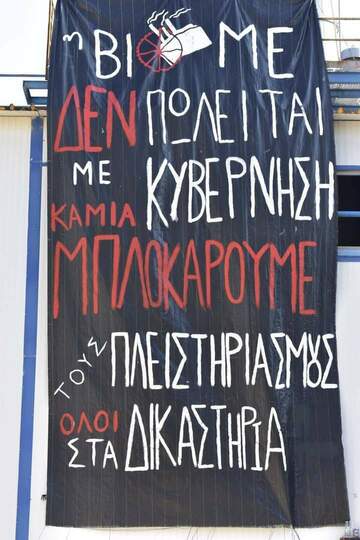 η ΒΙΟΜΕ
ΔΕΝ ΠΩΛΕΙΤΑΙ
ΜΕ ΚΥΒΕΡΝΗΣΗ
ΚΑΜΙΑ
ΜΠΛΟΚΑΡΟΥΜΕ
ΤΟΥΣ ΠΛΕΙΣΤΗΡΙΑΣΜΟΥΣ
ΟΛΟΙ
ΣΤΑ ΔΙΚΑΣΤΗΡΙΑ